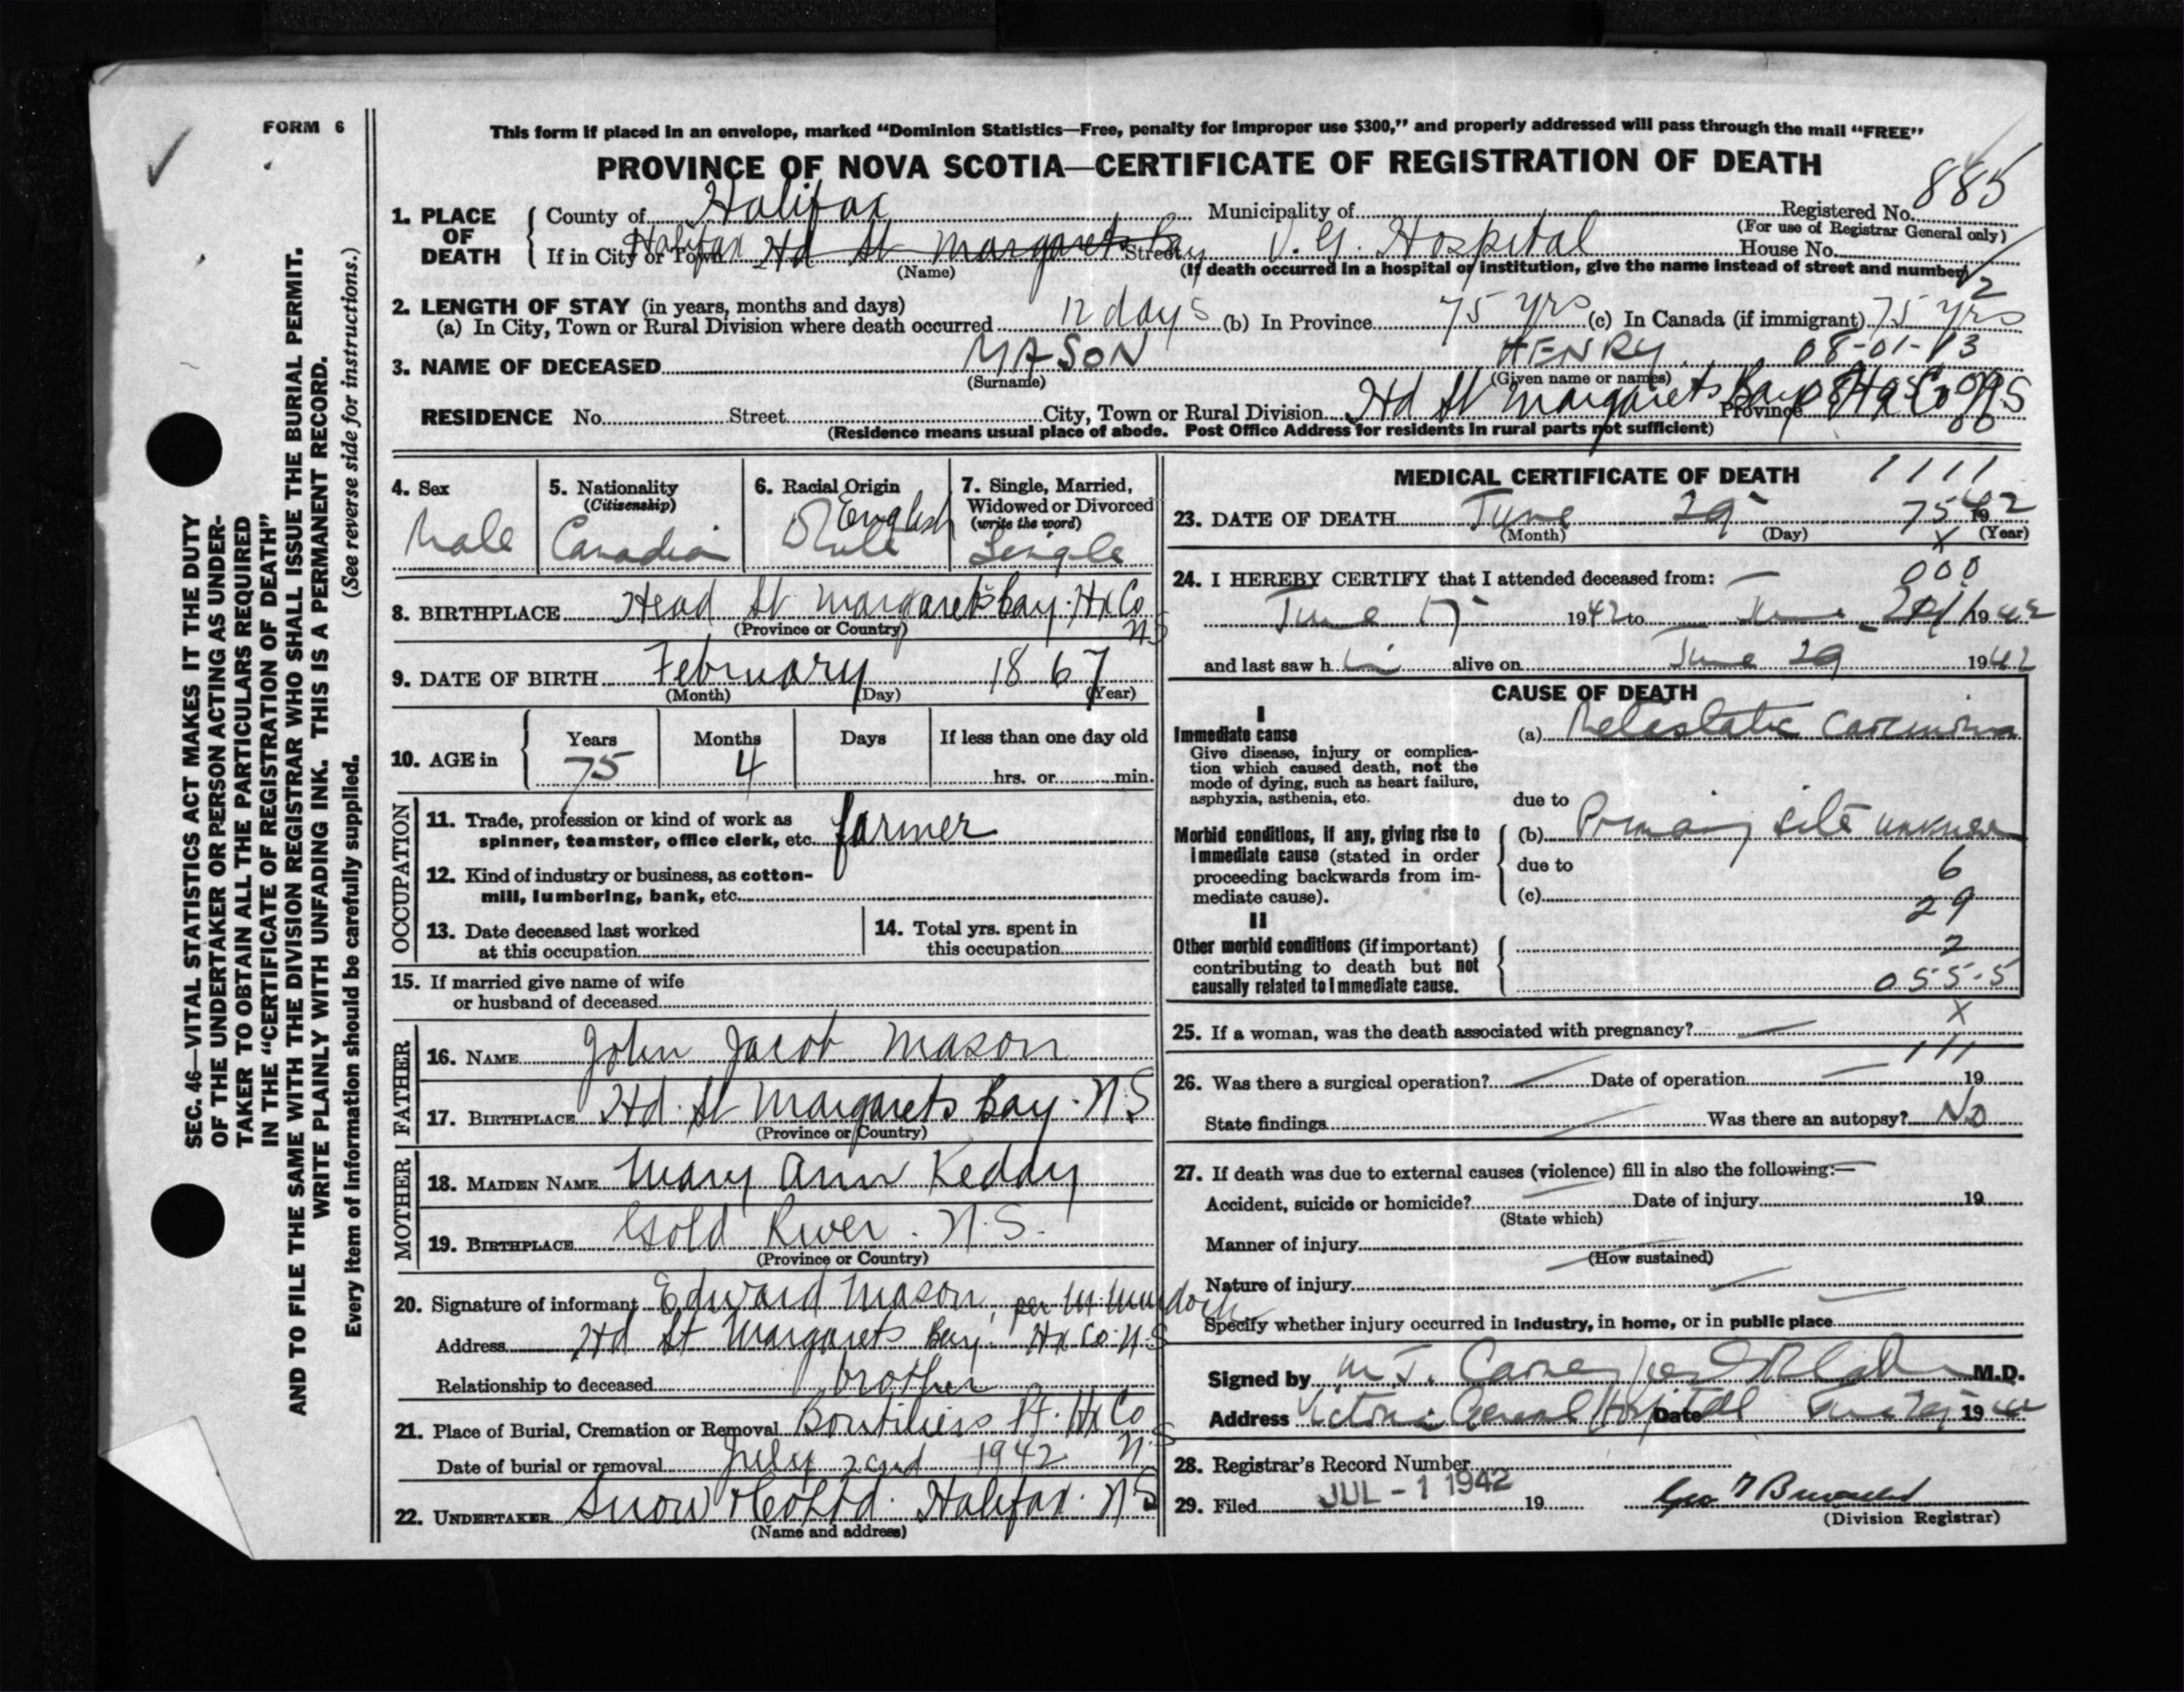 FORM 6
This form if placed in an envelope, marked “Dominion Statistics—Free, penalty for improper use $300,” and properly addressed will pass through the mail “FREE”
PROVINCE OF NOVA SCOTIA—CERTIFICATE OF REGISTRATION OF DEATH
885
1. PLACE OF DEATH
County of Halifax Municipality of Registered No.
(For use of Registrar General only)
If in City or Town Halifax Hd St Margarets Bay Street V. G. Hospital House No.
(Name) (If death occurred in a hospital or institution, give the name instead of street and number)
2
2. LENGTH OF STAY (in years, months and days)
(a) In City, Town or Rural Division where death occurred 12 days (b) In Province 75 yrs (c) In Canada (if immigrant) 75 yrs
3. NAME OF DECEASED MASON HENRY 08-01-13
(Surname) (Given name or names)
RESIDENCE No. Street City, Town or Rural Division Hd St Margarets Bay Province Hx Co NS
(Residence means usual place of abode. Post Office Address for residents in rural parts not sufficient)
4. Sex
Male
5. Nationality
(Citizenship)
Canadian
6. Racial Origin
English
7. Single, Married,
Widowed or Divorced
(write the word)
Single
8. BIRTHPLACE Head St Margarets Bay. Hx Co
NS
(Province or Country)
9. DATE OF BIRTH February 1867
(Month) (Day) (Year)
10. AGE in
Years Months Days If less than one day old
75 4 hrs. or min.
OCCUPATION
11. Trade, profession or kind of work as
spinner, teamster, office clerk, etc. farmer
12. Kind of industry or business, as cotton-
mill, lumbering, bank, etc.
13. Date deceased last worked
at this occupation
14. Total yrs. spent in
this occupation
15. If married give name of wife
or husband of deceased
FATHER
16. NAME John Jacob Mason
17. BIRTHPLACE Hd. St Margarets Bay. N.S
(Province or Country)
MOTHER
18. MAIDEN NAME Mary Ann Keddy
19. BIRTHPLACE Gold River. N.S.
(Province or Country)
20. Signature of informant Edward Mason, per M. Murdoch
Address Hd St Margarets Bay. Hx Co. N.S
Relationship to deceased brother
21. Place of Burial, Cremation or Removal Boutiliers Pt. Hx Co
N.S
Date of burial or removal July 2nd 1942
22. UNDERTAKER Snow & Co Ltd. Halifax. N S
(Name and address)
MEDICAL CERTIFICATE OF DEATH
1111
23. DATE OF DEATH June 29 75 1942
(Month) (Day) (Year)
x
24. I HEREBY CERTIFY that I attended deceased from:
000
June 17 1942 to June 29 1942
and last saw him alive on June 29 1942
CAUSE OF DEATH
I
Immediate cause
Give disease, injury or complica-
tion which caused death, not the
mode of dying, such as heart failure,
asphyxia, asthenia, etc.
(a) Metastatic Carcinoma
due to
Morbid conditions, if any, giving rise to
immediate cause (stated in order
proceeding backwards from im-
mediate cause).
(b) Primary site unknown
due to
6
(c)
29
II
Other morbid conditions (if important)
contributing to death but not
causally related to immediate cause.
2
055-5
25. If a woman, was the death associated with pregnancy?
X
111
26. Was there a surgical operation? Date of operation 19
State findings Was there an autopsy? No
27. If death was due to external causes (violence) fill in also the following:—
Accident, suicide or homicide? Date of injury 19
(State which)
Manner of injury
(How sustained)
Nature of injury
Specify whether injury occurred in industry, in home, or in public place
Signed by M.D.
Address Victoria General Hospital Date 19
28. Registrar's Record Number
29. Filed JUL - 1 1942 19
(Division Registrar)
SEC. 46—VITAL STATISTICS ACT MAKES IT THE DUTY
OF THE UNDERTAKER OR PERSON ACTING AS UNDER-
TAKER TO OBTAIN ALL THE PARTICULARS REQUIRED
IN THE “CERTIFICATE OF REGISTRATION OF DEATH”
AND TO FILE THE SAME WITH THE DIVISION REGISTRAR WHO SHALL ISSUE THE BURIAL PERMIT.
WRITE PLAINLY WITH UNFADING INK. THIS IS A PERMANENT RECORD.
Every item of information should be carefully supplied. (See reverse side for instructions.)